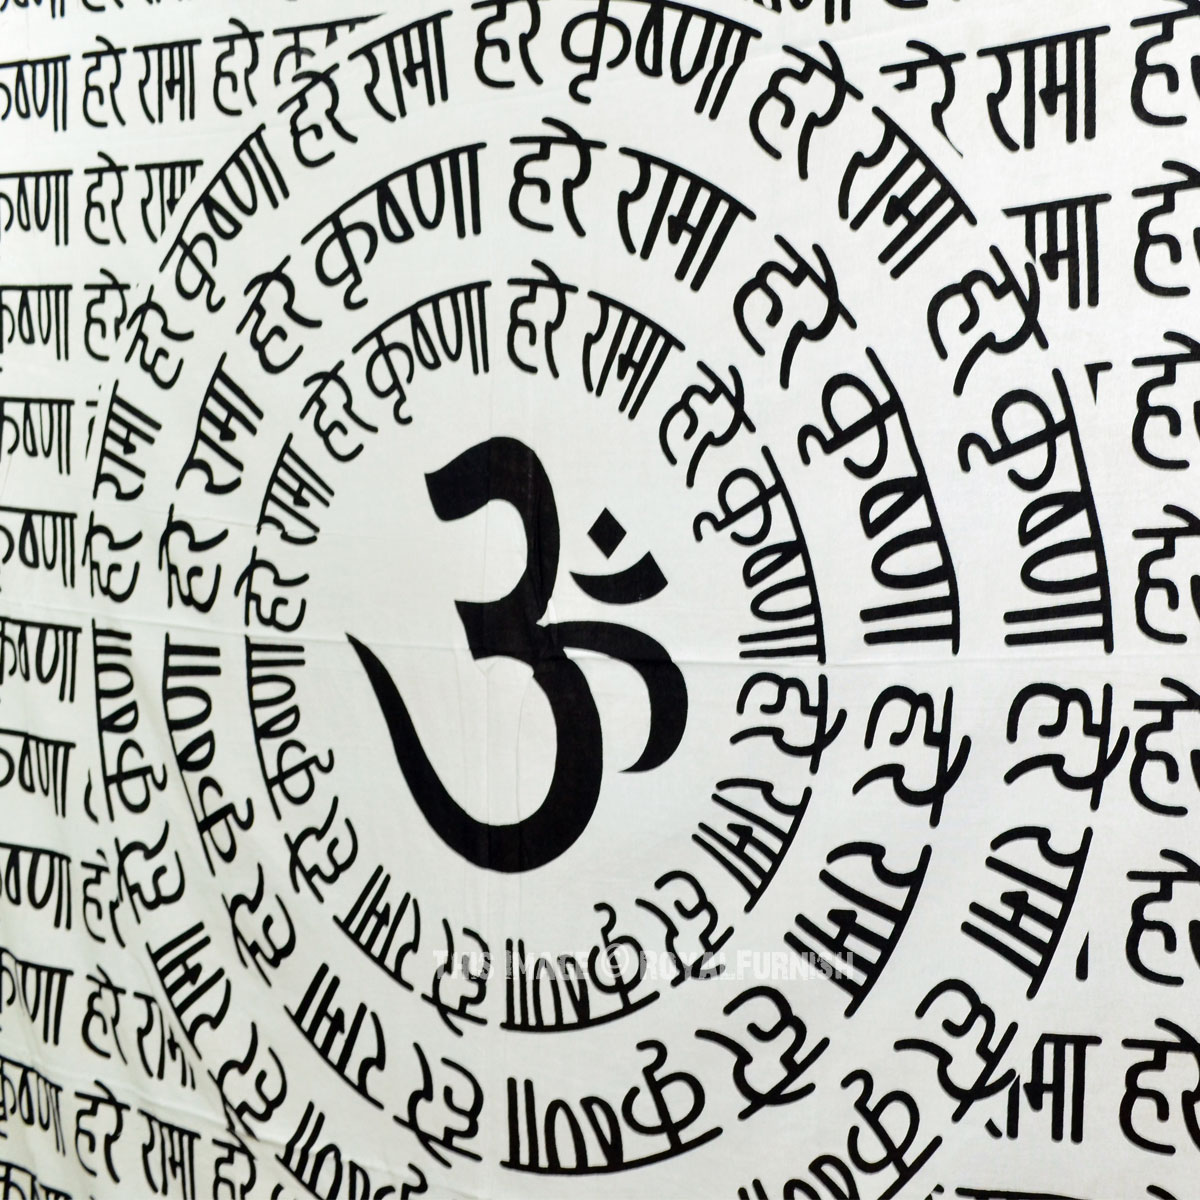 कृष्णा हरे रामा हरे
हरे रामा हरे
कृष्णा हरे रामा
कृष्णा हरे
कृष्णा
कृष्णा
कृष्णा
कृष्णा
कृष्णा हरे
कृष्णा हरे
कृष्णा हरे रामा हरे
हरे कृष्णा हरे रामा हरे कृष्णा हरे रामा हरे कृष्णा
कृष्णा हरे रामा हरे कृष्णा हरे रामा हरे कृष्णा हरे रामा
हरे रामा हरे कृष्णा हरे रामा हरे कृष्णा हरे रामा हरे कृष्णा हरे रामा हरे कृष्णा
हरे रामा हरे कृष्णा हरे रामा हरे कृष्णा हरे रामा हरे कृष्णा हरे रामा हरे कृष्णा
ॐ
हरे
हरे
हरे
हरे
हरे
हरे
THIS IMAGE @ ROYALFURNISH